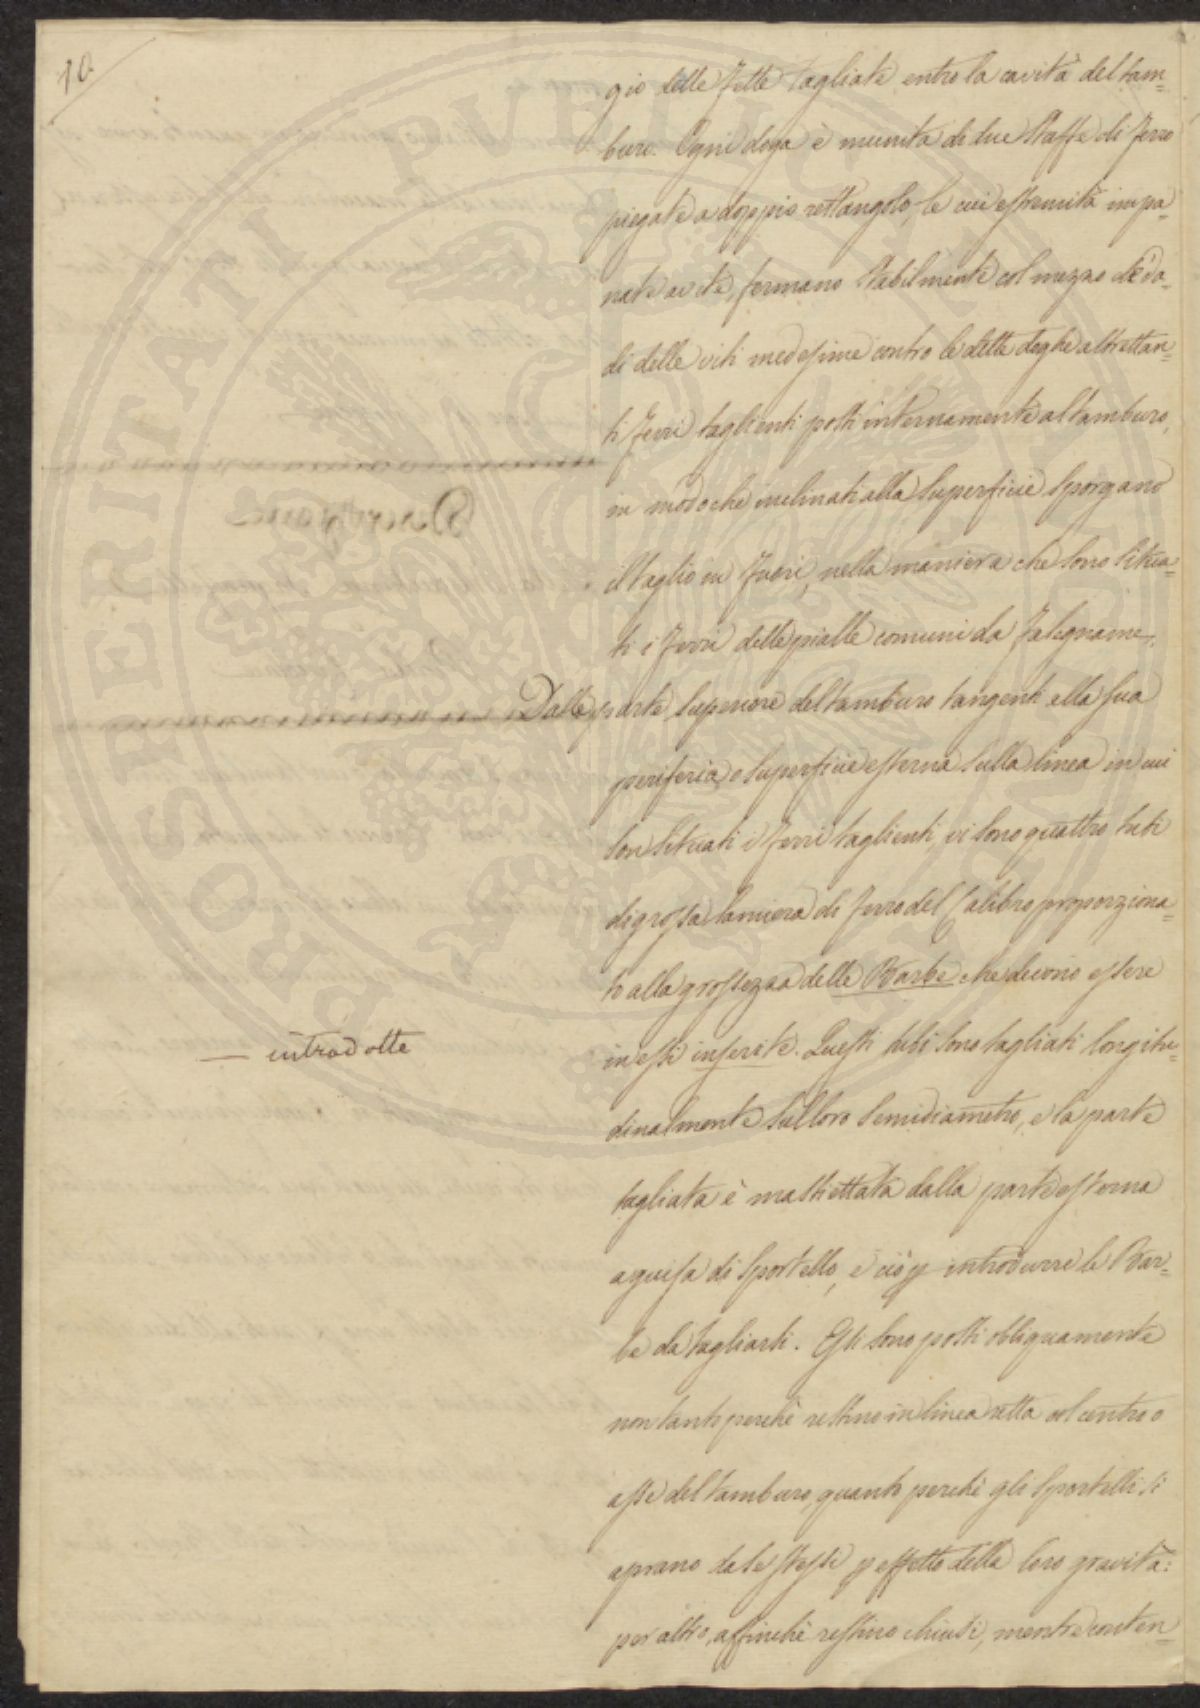 10.
gio delle fette tagliate entro la cavità del tam=
buro. Ogni doga è munita di due Staffe di ferro
piegate a doppio rettangolo, le cui estremità impa=
nate a vite, fermano stabilmente col mezzo de' da=
di delle viti medesime contro le dette doghe altrettan=
ti ferri taglienti posti internamente al tamburo,
in modo che inclinati alla superficie sporgano
il taglio in fuori, nella maniera che sono situa=
ti i ferri delle pialle comuni da falegname.
Dalla parte superiore del tamburo tangenti alla sua
periferia, o superficie esterna sulla linea in cui
son situati i ferri taglienti, vi sono quattro tubi
di grossa lamiera di ferro del Calibro proporziona=
to alla grossezza delle Barbe che devono essere
in essi inserite. Questi tubi sono tagliati longitu=
— introdotte
dinalmente sul loro semidiametro, e la parte
tagliata è mastiettata dalla parte esterna
a guisa di sportello, e ciò p introdurre le Bar=
be da tagliarsi. Essi sono posti obliquamente
non tanto perchè restino in linea retta col centro o
asse del tamburo, quanto perchè gli sportelli si
aprano da se stessi p effetto della loro gravità:
per altro, affinchè restino chiusi, mentre conten=
PROSPERITATI PVBLICAE